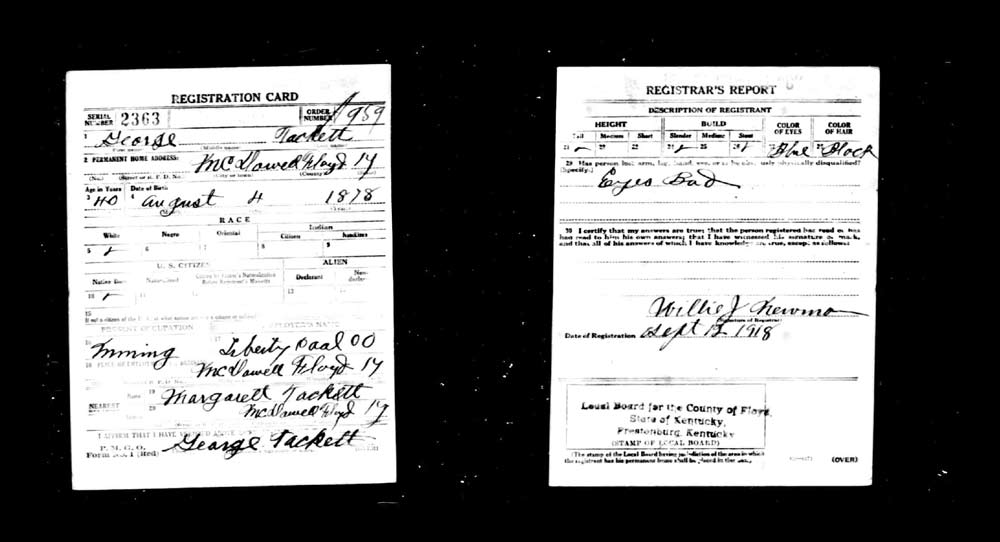 REGISTRATION CARD
SERIAL NUMBER 2363 ORDER NUMBER 959
1 George Tackett
(First name) (Middle name)
2 PERMANENT HOME ADDRESS: McDowell Floyd Ky
(No.) (Street or R. F. D. No.) (City or town) (County)
Age in Years Date of Birth
3 40 4 August 4 1878
RACE
White Negro Oriental Indian
Citizen Noncitizen
5 ✓ 6 7 8 9
U. S. CITIZEN ALIEN
Native Born Naturalized Citizen by Father's Naturalization Before Registrant's Majority Declarant Non-declarant
10 ✓ 11 12 13
15
If not a citizen of the U. S., of what nation are you a citizen or subject?
PRESENT OCCUPATION EMPLOYER'S NAME
16 Mining 17 Liberty Coal CO
18 PLACE OF EMPLOYMENT McDowell Floyd Ky
NEAREST Name 19 Margarett Tackett
20 McDowell Floyd Ky
I AFFIRM THAT I HAVE VERIFIED ABOVE
P. M. G. O.
Form No. 1 (Red) George Tackett
REGISTRAR'S REPORT
DESCRIPTION OF REGISTRANT
HEIGHT BUILD COLOR OF EYES COLOR OF HAIR
Tall Medium Short Slender Medium Stout
21 ✓ 22 23 24 ✓ 25 26 27 Blue 28 Black
29 Has person lost arm, leg, hand, eye, or is he obviously physically disqualified?
(Specify.) Eyes Bad
30 I certify that my answers are true; that the person registered has read or has
had read to him his own answers; that I have witnessed his signature or mark,
and that all of his answers of which I have knowledge are true, except as follows:
Willie J
(Signature of Registrar)
Date of Registration Sept 12 1918
Local Board for the County of Floyd,
State of Kentucky,
Prestonburg, Kentucky
(STAMP OF LOCAL BOARD)
(The stamp of the Local Board having jurisdiction of the area in which
the registrant has his permanent home shall be placed in this box.)
(OVER)